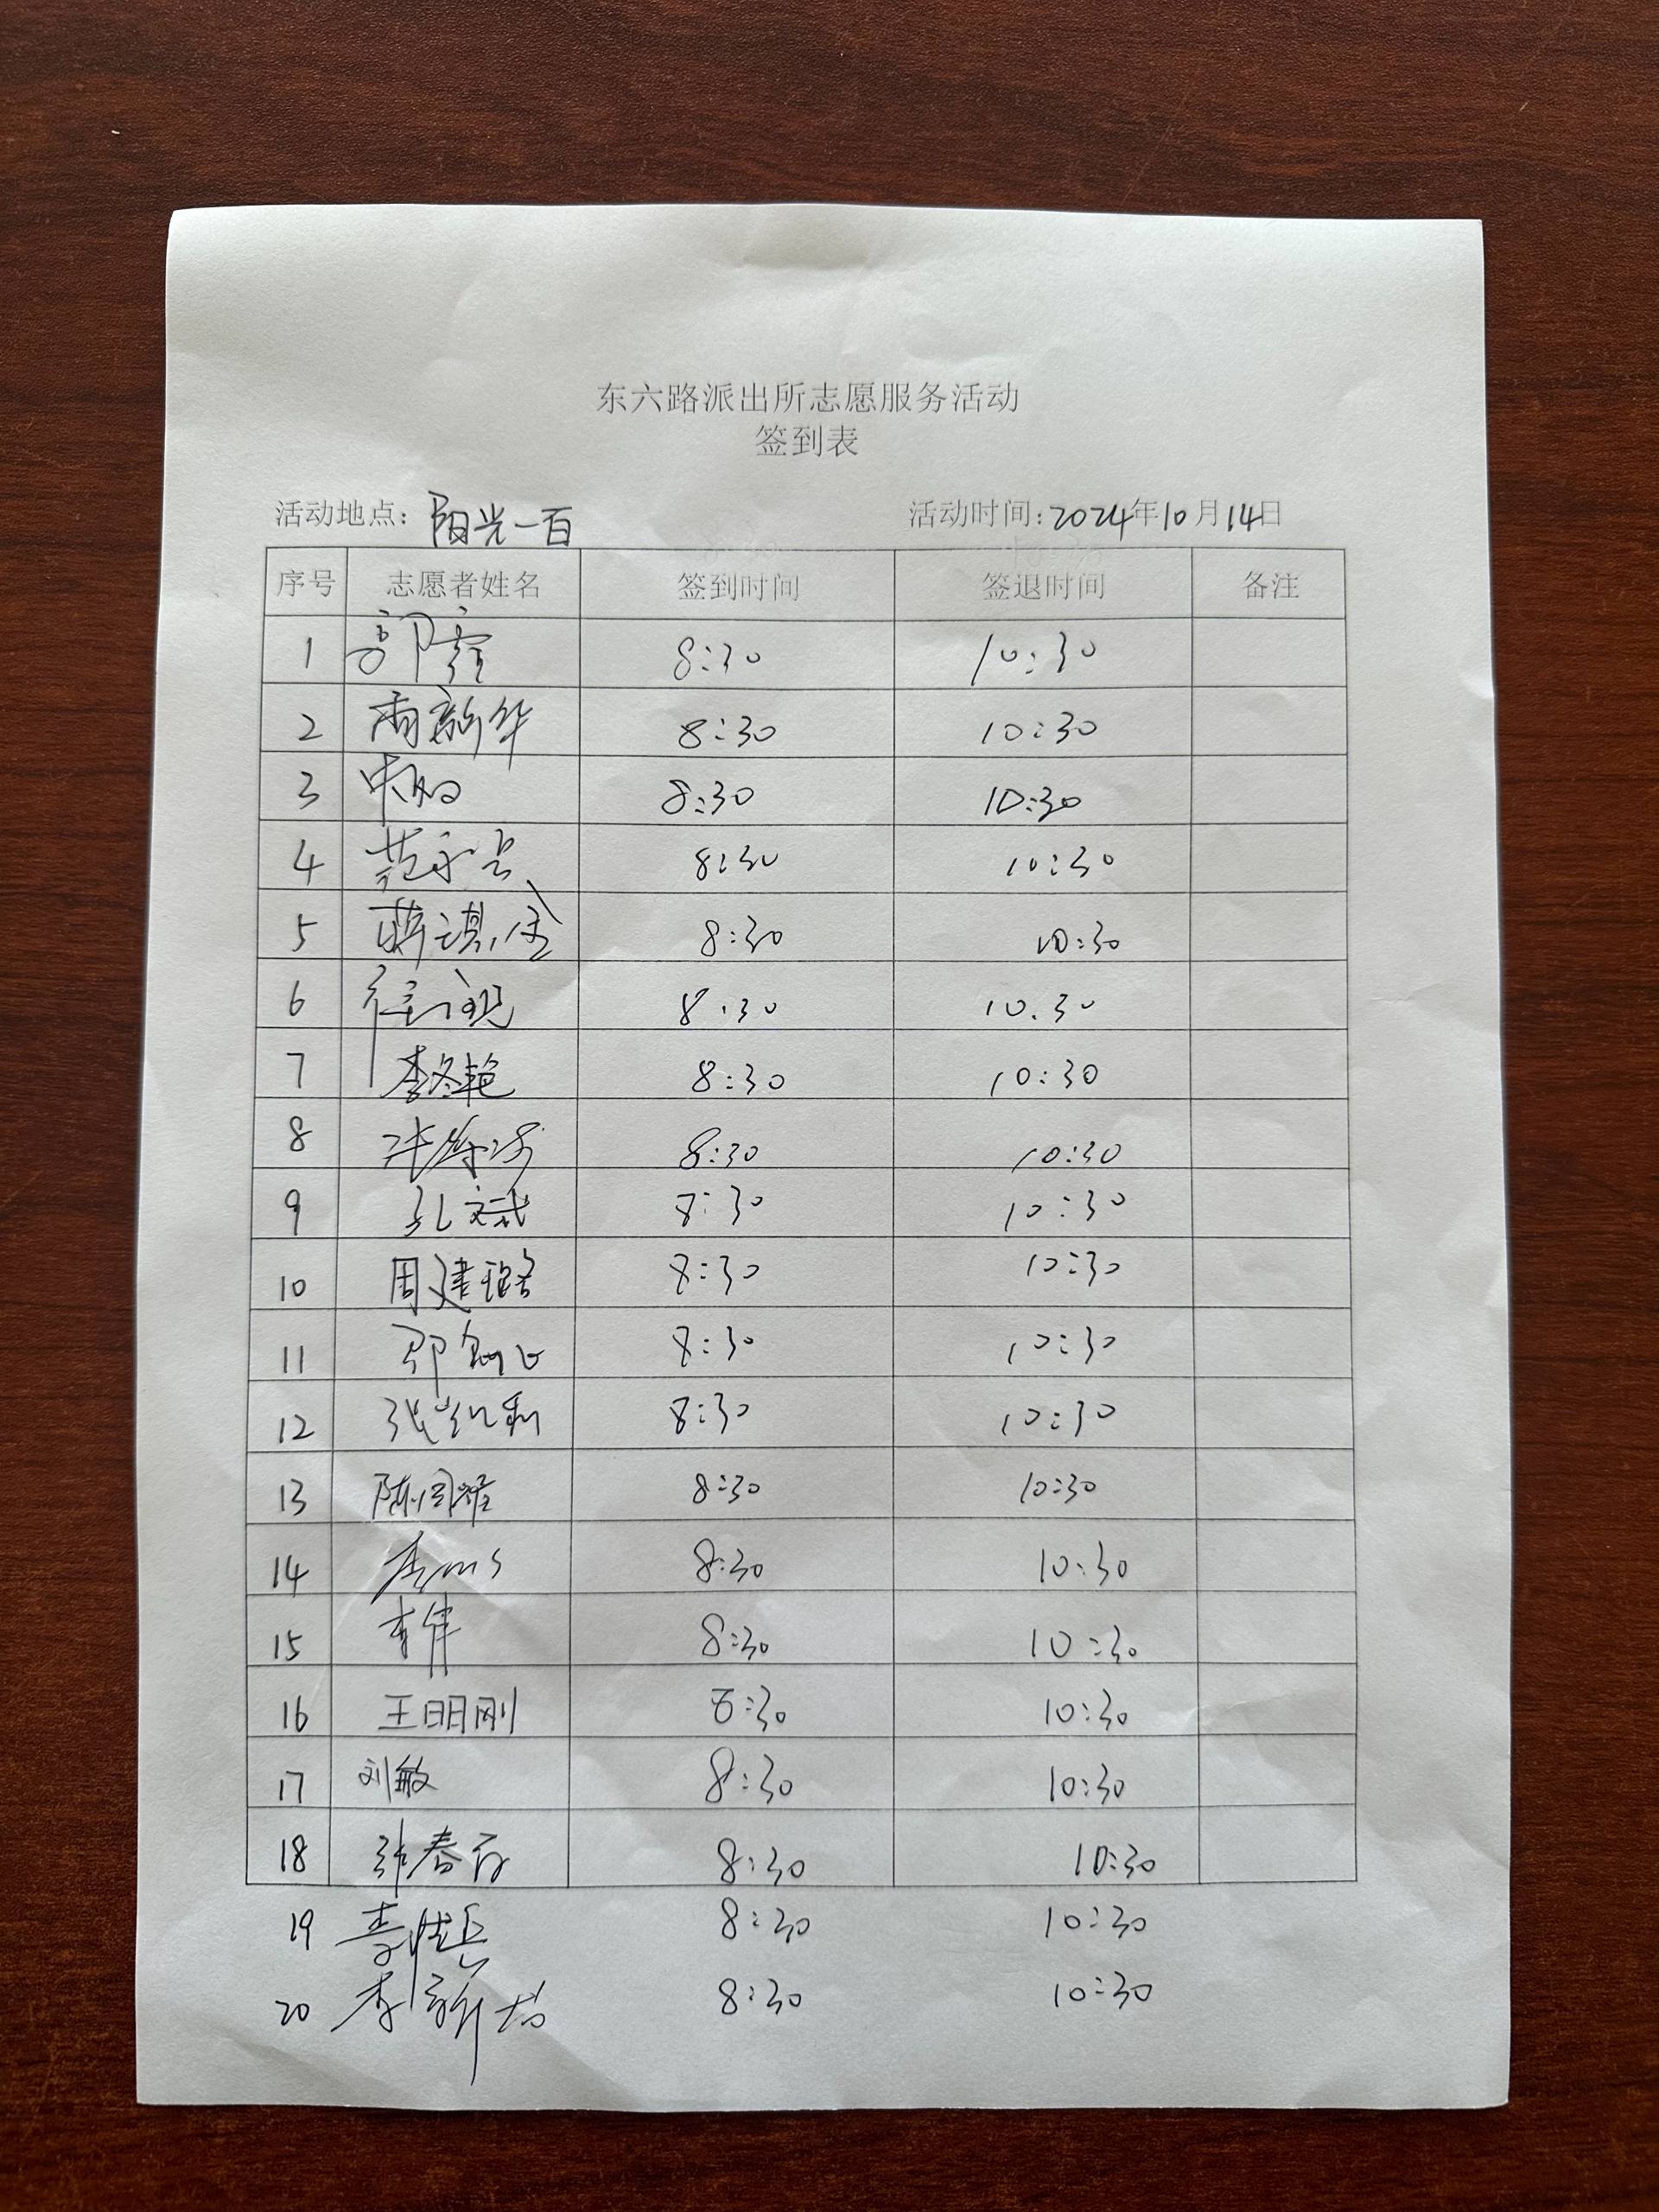 东六路派出所志愿服务活动
签到表
活动地点: 阳光一百 活动时间: 2024年10月14日
序号 志愿者姓名 签到时间 签退时间 备注
1 8:30 10:30
2 8:30 10:30
3 8:30 10:30
4 8:30 10:30
5 8:30 10:30
6 8:30 10:30
7 李冬艳 8:30 10:30
8 8:30 10:30
9 孔文斌 8:30 10:30
10 周建璐 8:30 10:30
11 8:30 10:30
12 8:30 10:30
13 8:30 10:30
14 8:30 10:30
15 8:30 10:30
16 王明刚 8:30 10:30
17 刘敏 8:30 10:30
18 8:30 10:30
19 8:30 10:30
20 8:30 10:30